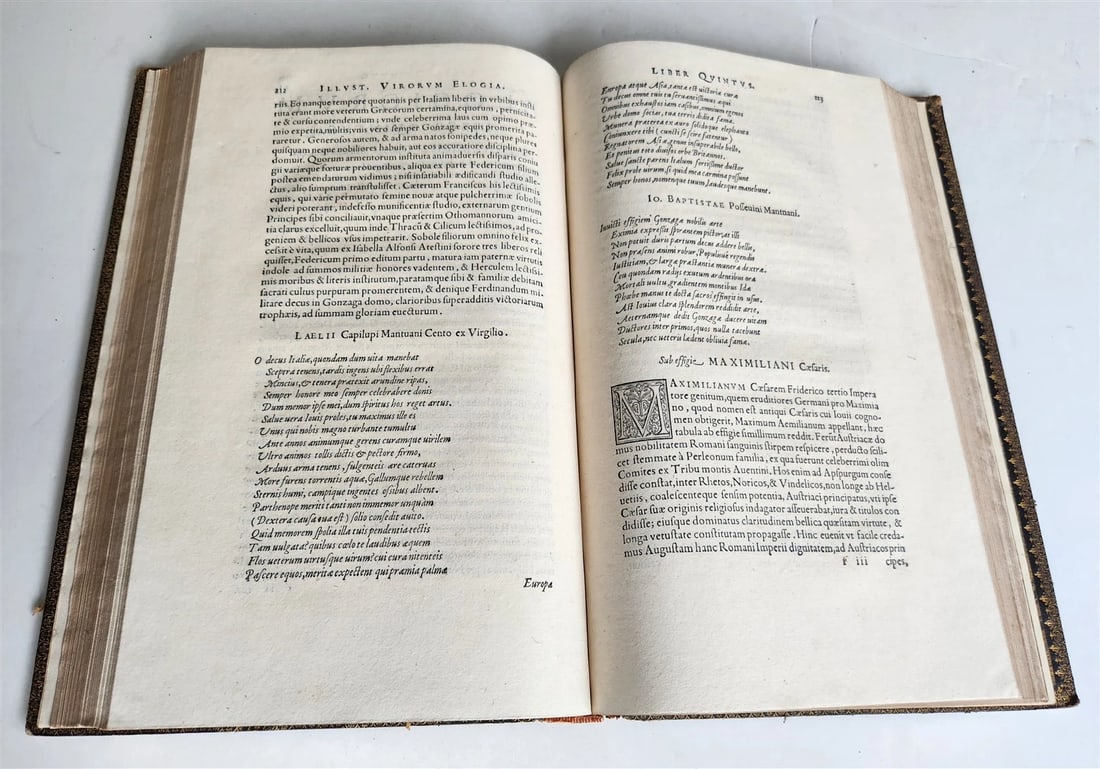 212 ILLVST. VIRORVM ELOGIA.
riis. Eo nanque tempore quotannis per Italiam liberis in vrbibus insti
tuta erant more veterum Græcorum certamina, equorum, pernicita-
te & cursu contendentium; vnde celeberrima laus cum opimo præ-
mio expetita, multis, vni vero semper Gonzagæ equis promerita pa-
raretur. Generosos autem, & ad arma natos sonipedes, neque plures
quisquam neque nobiliores habuit, aut eos accuratiore disciplina per-
domuit. Quorum armentorum instituta animaduersis disparis coniu
gii variæque fœturæ prouentibus, aliqua ex parte Federicum filium
postea emendaturum vidimus; nisi insatiabili ædificandi studio alle-
ctus, alio sumptum transtulisset. Cæterum Franciscus his lectissimis
equis, qui varie permutato semine nouæ atque pulcherrimæ sobolis
videri poterant, indefesso munificentiæ studio, externarum gentium
Principes sibi conciliauit, vnaque præsertim Othomannorum amici-
tia clarus excelluit, quum inde Thracii & Cilicum lectissimos, ad pro-
geniem & bellicos vsus impetrarit. Sobole siliorum omnino felix ex-
cessit è vita, quum ex Isabella Alfonsi Atestini sorore tres liberos reli
quisset, Federicum primo editum partu, matura iam paternæ virtutis
indole ad summos militiæ honores vadentem, & Herculem lectissi-
mis moribus & literis institutum, paratamque sibi & familiæ debitam
sacrati cultus purpuram promerentem, & denique Ferdinandum mi-
litare decus in Gonzaga domo, clarioribus superadditis victoriarum
trophæis, ad summam gloriam euecturum.
LAELII Capilupi Mantuani Cento ex Virgilio.
O decus Italiæ, quondam dum vita manebat
Sceptra tenens, tardis ingens vbi flexibus errat
Mincius, & tenera prætexit arundine ripas,
Semper honore meo semper celebrabere donis
Dum memor ipse mei, dum spiritus hos reget artus.
Salue vera Iouis proles, tu maximus ille es
Vnus qui nobis magno turbante tumultu
Ante annos animumque gerens curamque virilem
Vltro animos tollis dictis & pectore firmo,
Arduus arma tenens, fulgenteis ære cateruas
More furens torrentis aquæ, Gallumque rebellem
Sternis humi, campique ingentes ossibus albent.
Parthenope meriti tanti non immemor unquàm
(Dextera causa tua est) solio consedit auito.
Quid memorem spolia illa tuis pendentia tectis
Tam vulgata? quibus cœlo te laudibus æquem
Flos veterum virtusque virum? cui cura nitenteis
Pascere equos, meritæ expectent qui præmia palmæ
Europa
LIBER QVINTVS. 213
Europa atque Asia, tanta est victoria cura
Tu decus omne tuis tu seruantissimus æqui
Omnibus exhaustos iam casibus, omnium egenos
Vrbe domo socias, tua terris didita fama.
Munera præterea ex auro solidoque elephanto
(Coniunxere tibi (cuncti se scire fatentur)
Regnatorem Asiæ genus insuperabile bello,
Et penitus toto diuisos orbe Britannos.
Salue sancte parens Italum fortissime ductor
Felix prole virum, si quid mea carmina possunt
Semper honos, nomenque tuum, laudesque manebunt.
IO. BAPTISTAE Posseuini Mantuani.
Inuicti effigiem Gonzagæ nobilis arte
Eximia expressit spirantem pictor, at illi
Non potuit duris partum decus addere bellis,
Non præsens animi robur, Populiue regendis
Iustitiam, & larga præstantia munera dextra.
Ceu quondam radijs exutum ardentibus ora
Mortali vultu gradientem montibus Ida
Phœbe manus te docta sacros effingit in vsus.
Ast Iouius clara splendorem reddidit arte,
Aeternamque dedit Gonzagæ ducere vitam
Ductores inter primos, quos nulla tacebunt
Secula, nec veteris lædent obliuia famæ.
Sub effigie MAXIMILIANI Cæsaris.
MAXIMILIANVM Cæsarem Friderico tertio Impera
tore genitum, quem eruditiores Germani pro Maximia
no, quod nomen est antiqui Cæsaris cui Iouii cogno-
men obtigerit, Maximum Aemilianum appellant, hæc
tabula ab effigie simillimum reddit. Fertur Austriacæ do
mus nobilitatem Romani sanguinis stirpem respicere, perducto scili-
cet stemmate à Perleonum familia, ex qua fuerunt celeberrimi olim
Comites ex Tribu montis Auentini, Hos enim ad Apspurgum conse
disse constat, inter Rhetos, Noricos, & Vindelicos, non longe ab Hel-
uetiis, coalescenteque sensim potentia, Austriaci principatus, vti ipse
Cæsar suæ originis religiosus indagator asseuerabat, iura & titulos con
didisse; eiusque dominatus claritudinem bellica quæsitam virtute, &
longa vetustate constitutam propagasse. Hinc euenit vt facile creda-
mus Augustam hanc Romani Imperii dignitatem, ad Austriacos prin
F iii cipes,